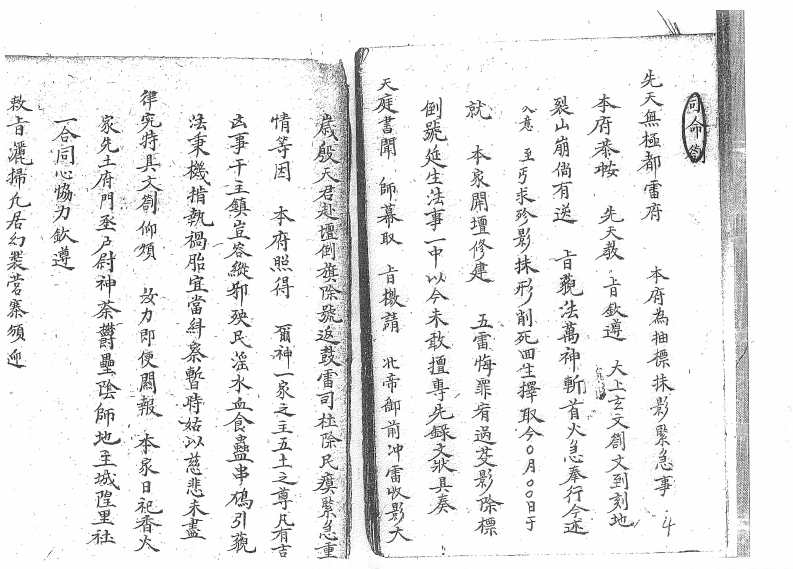 司命劄
先天無極都雷府 本府為抽標抹影緊急事 4
本府恭按 先天敕旨欽遵 大上玄文劄文到刻地
裂山崩倘有送 旨藐法萬神斬首火急奉行今述
入意 至丐求殄影抹形削死回生擇取今〇月〇〇日于
就 本家開壇修建 五雷悔罪宥過芟影除標
倒號延生法事一中以今未敢擅專先錄文狀具奏
天庭書聞 師幕取 旨檄請 北帝御前冲雷收影大
歲殷天君赴壇倒旗除號返鼓雷司社除民瘼緊急重
情等因 本府照得 爾神一家之主五土之尊凡有吉
凶事干主鎮豈容縱邪殃民滛水血食蠱串鴆引藐
法秉機指執禍胎宜當糾察暫時姑以慈悲未盡
律究特具文劄仰煩 效力即便關報 本家日祀香火
家先土府門丞戶尉神荼鬱壘陰師地主城隍里社
一合同心協力欽遵
敕旨灑掃九居幻裝营寨領迎